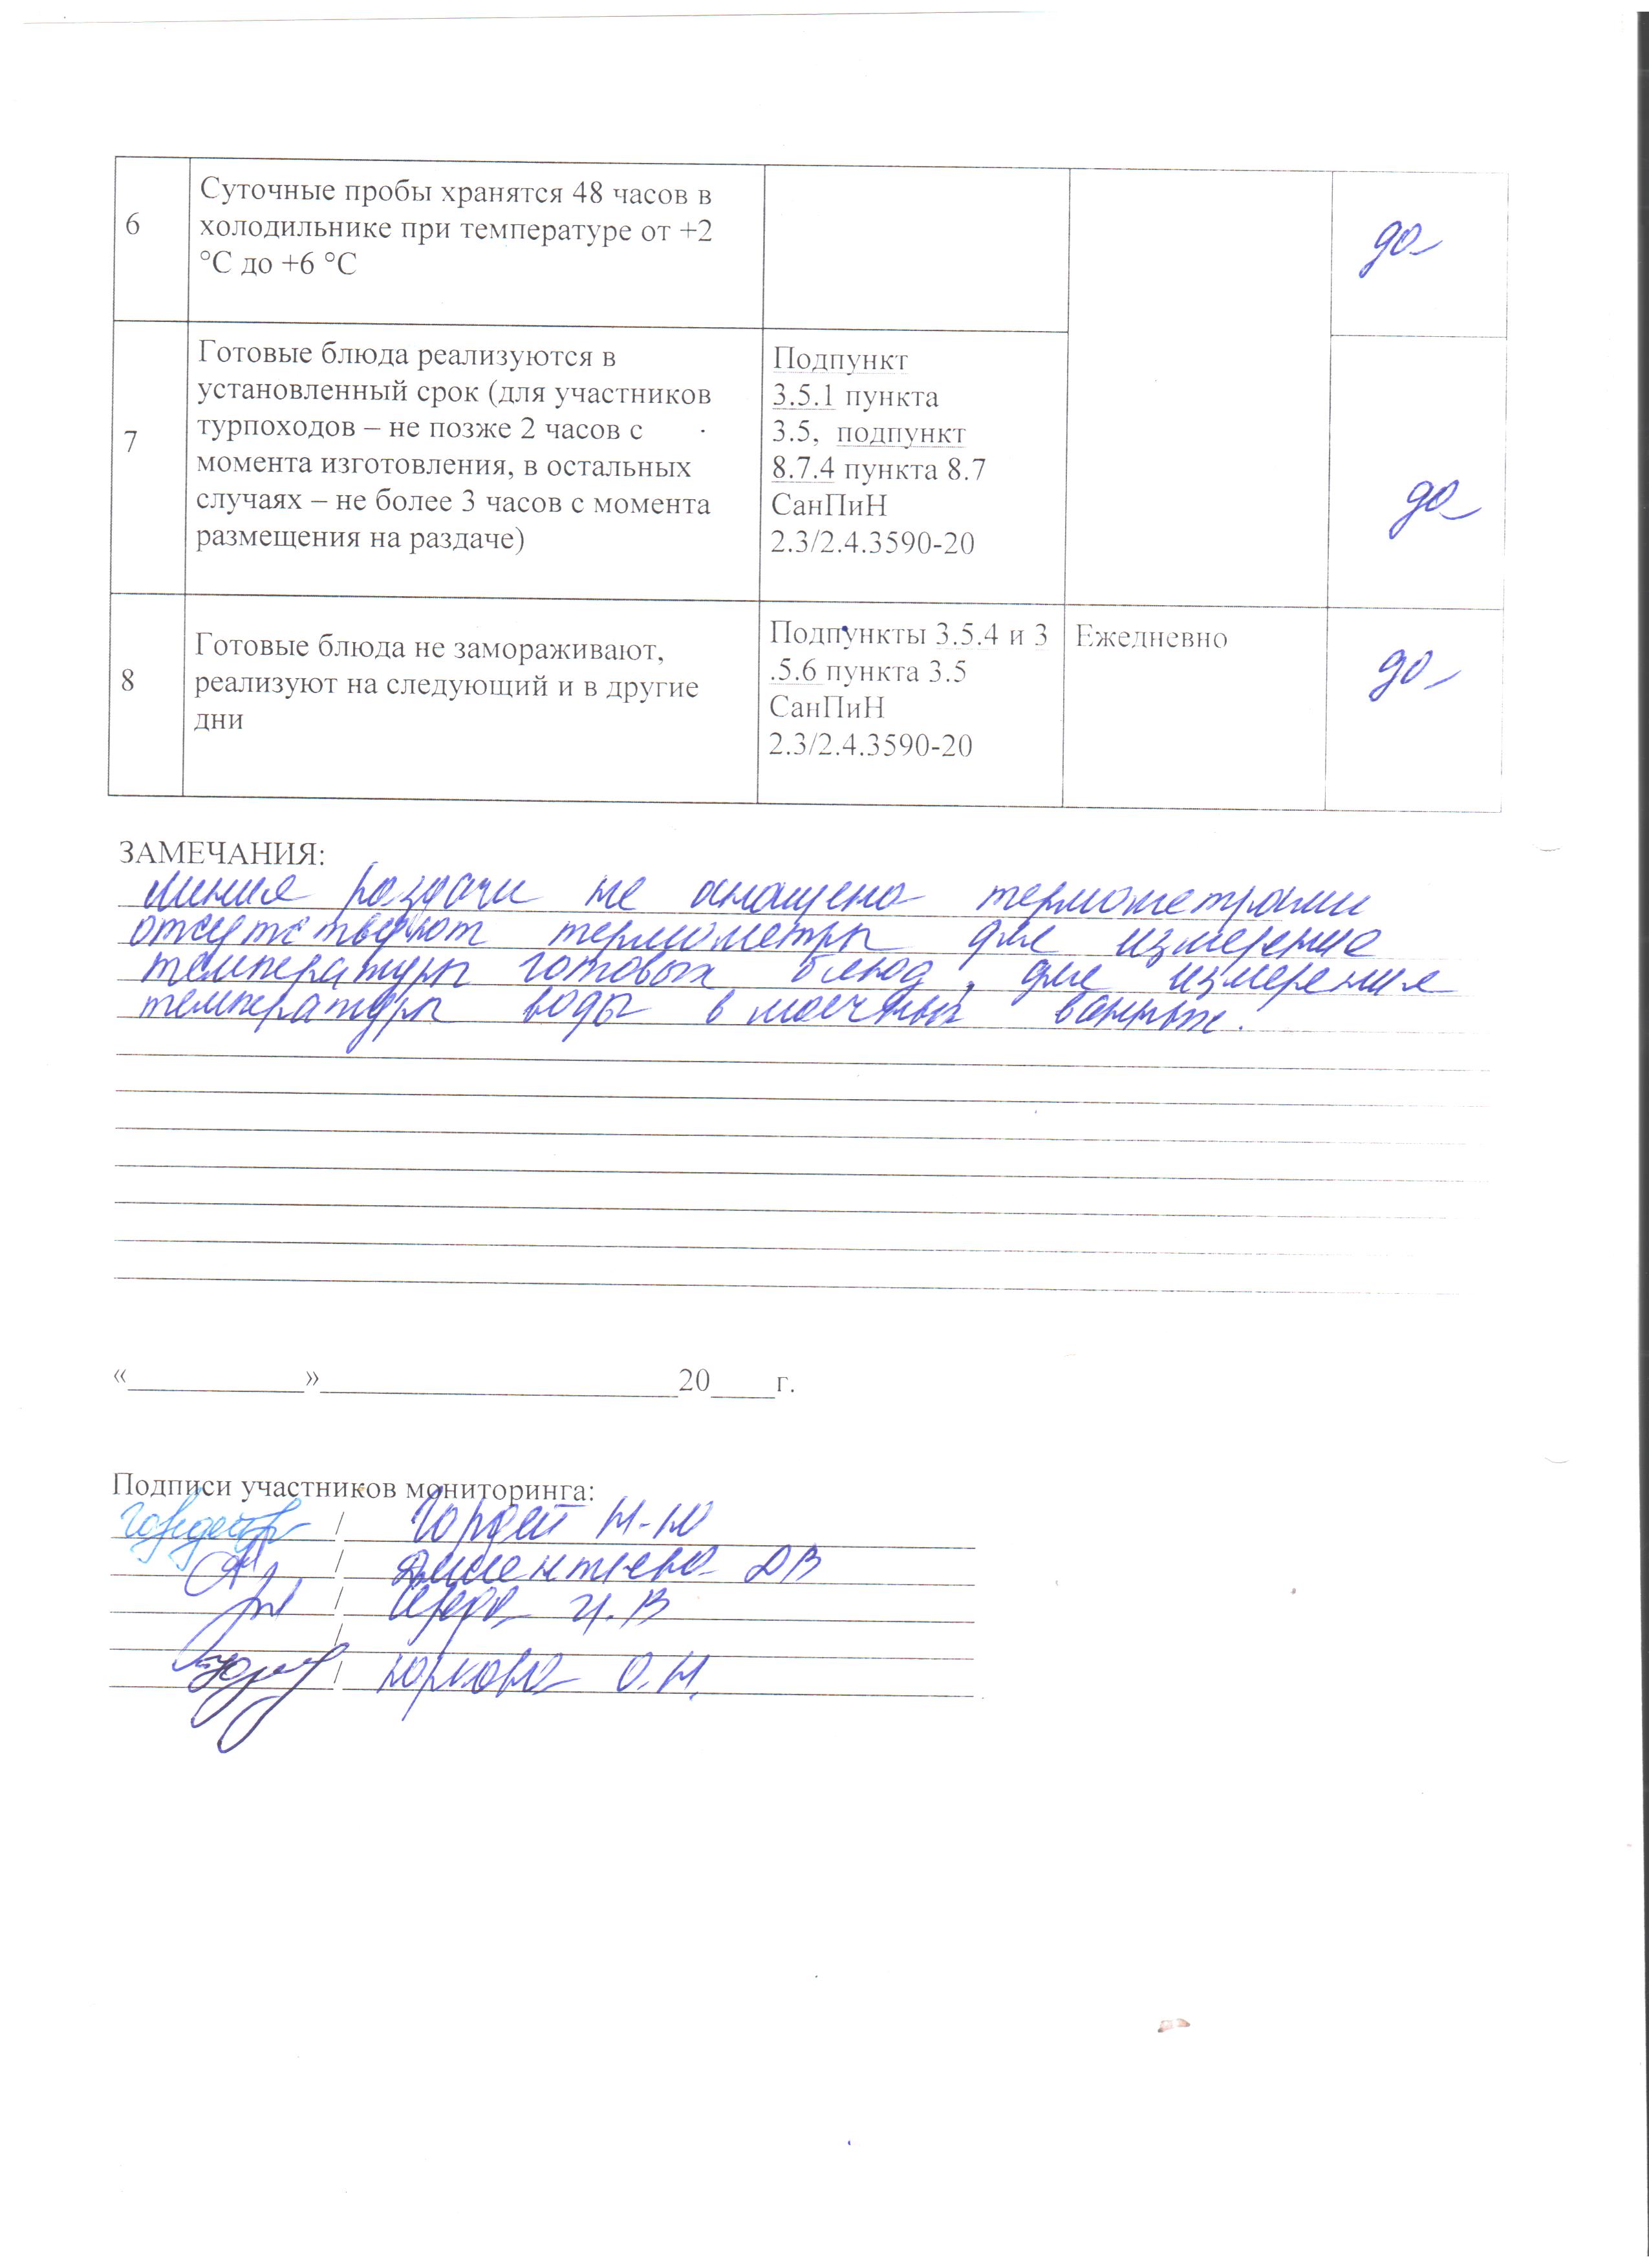 6
Суточные пробы хранятся 48 часов в
холодильнике при температуре от +2
°С до +6 °С
да
7
Готовые блюда реализуются в
установленный срок (для участников
турпоходов – не позже 2 часов с
момента изготовления, в остальных
случаях – не более 3 часов с момента
размещения на раздаче)
Подпункт
3.5.1 пункта
3.5, подпункт
8.7.4 пункта 8.7
СанПиН
2.3/2.4.3590-20
да
8
Готовые блюда не замораживают,
реализуют на следующий и в другие
дни
Подпункты 3.5.4 и 3
.5.6 пункта 3.5
СанПиН
2.3/2.4.3590-20
Ежедневно
да
ЗАМЕЧАНИЯ:
Линия раздачи не оснащена термометрами
отсутствуют термометры для измерения
температуры готовых блюд, для измерения
температуры воды в моечных ваннах.
«___________»______________________20____г.
Подписи участников мониторинга:
/ Гордей Н.Ю
/ Дементьева ДВ
/ В
/
/ О.Н.